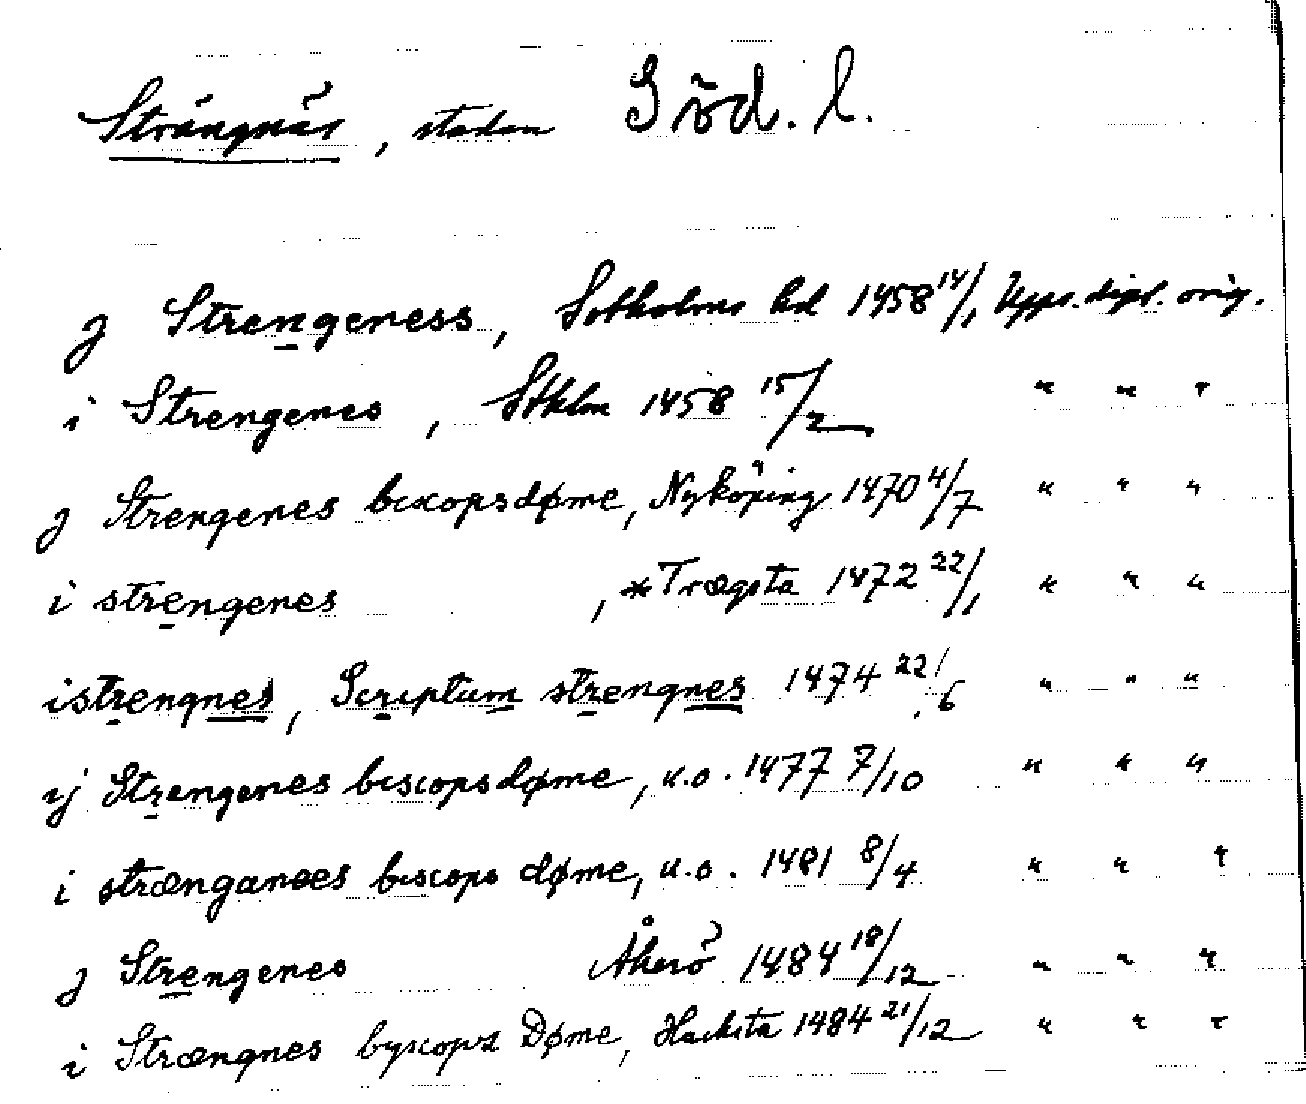 Strängnäs, staden Söd. l.
j Strengeness, Sotholms hd 1458 14/1 Upps. dipl. orig.
i Strengenes, Sthlm 1458 15/2 " " "
j Strengenes bixopsdøme, Nyköping 1470 4/7 " " "
i strengenes, *Trægsta 1472 22/1 " " "
istrengnes, Scriptum strengnes 1474 22/6 " " "
ij Strengenes biscopsdøme, u.o. 1477 7/10 " " "
i strænganæes biscops døme, u.o. 1481 8/4 " " "
j Strengenes Åkerö 1484 18/12 " " "
i Strængnes byscopz Døme, Hacksta 1484 21/12 " " "